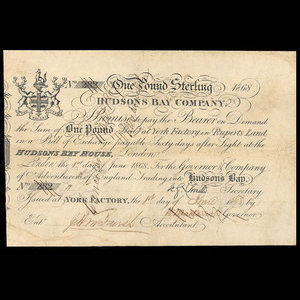 No 222 One Pound Sterling 1868
HUDSONS BAY COMPANY.
Promise to pay the Bearer on Demand
the Sum of One Pound at York Factory in Ruperts Land
in a Bill of Exchange payable Sixty days after Sight at the
HUDSONS BAY HOUSE, London
June For the Governor & Company
of Adventurers of England Trading into Hudsons Bay.
No 222 Secretary
Issued at YORK FACTORY, the 1st day of by
Governor
Ent. Accountant